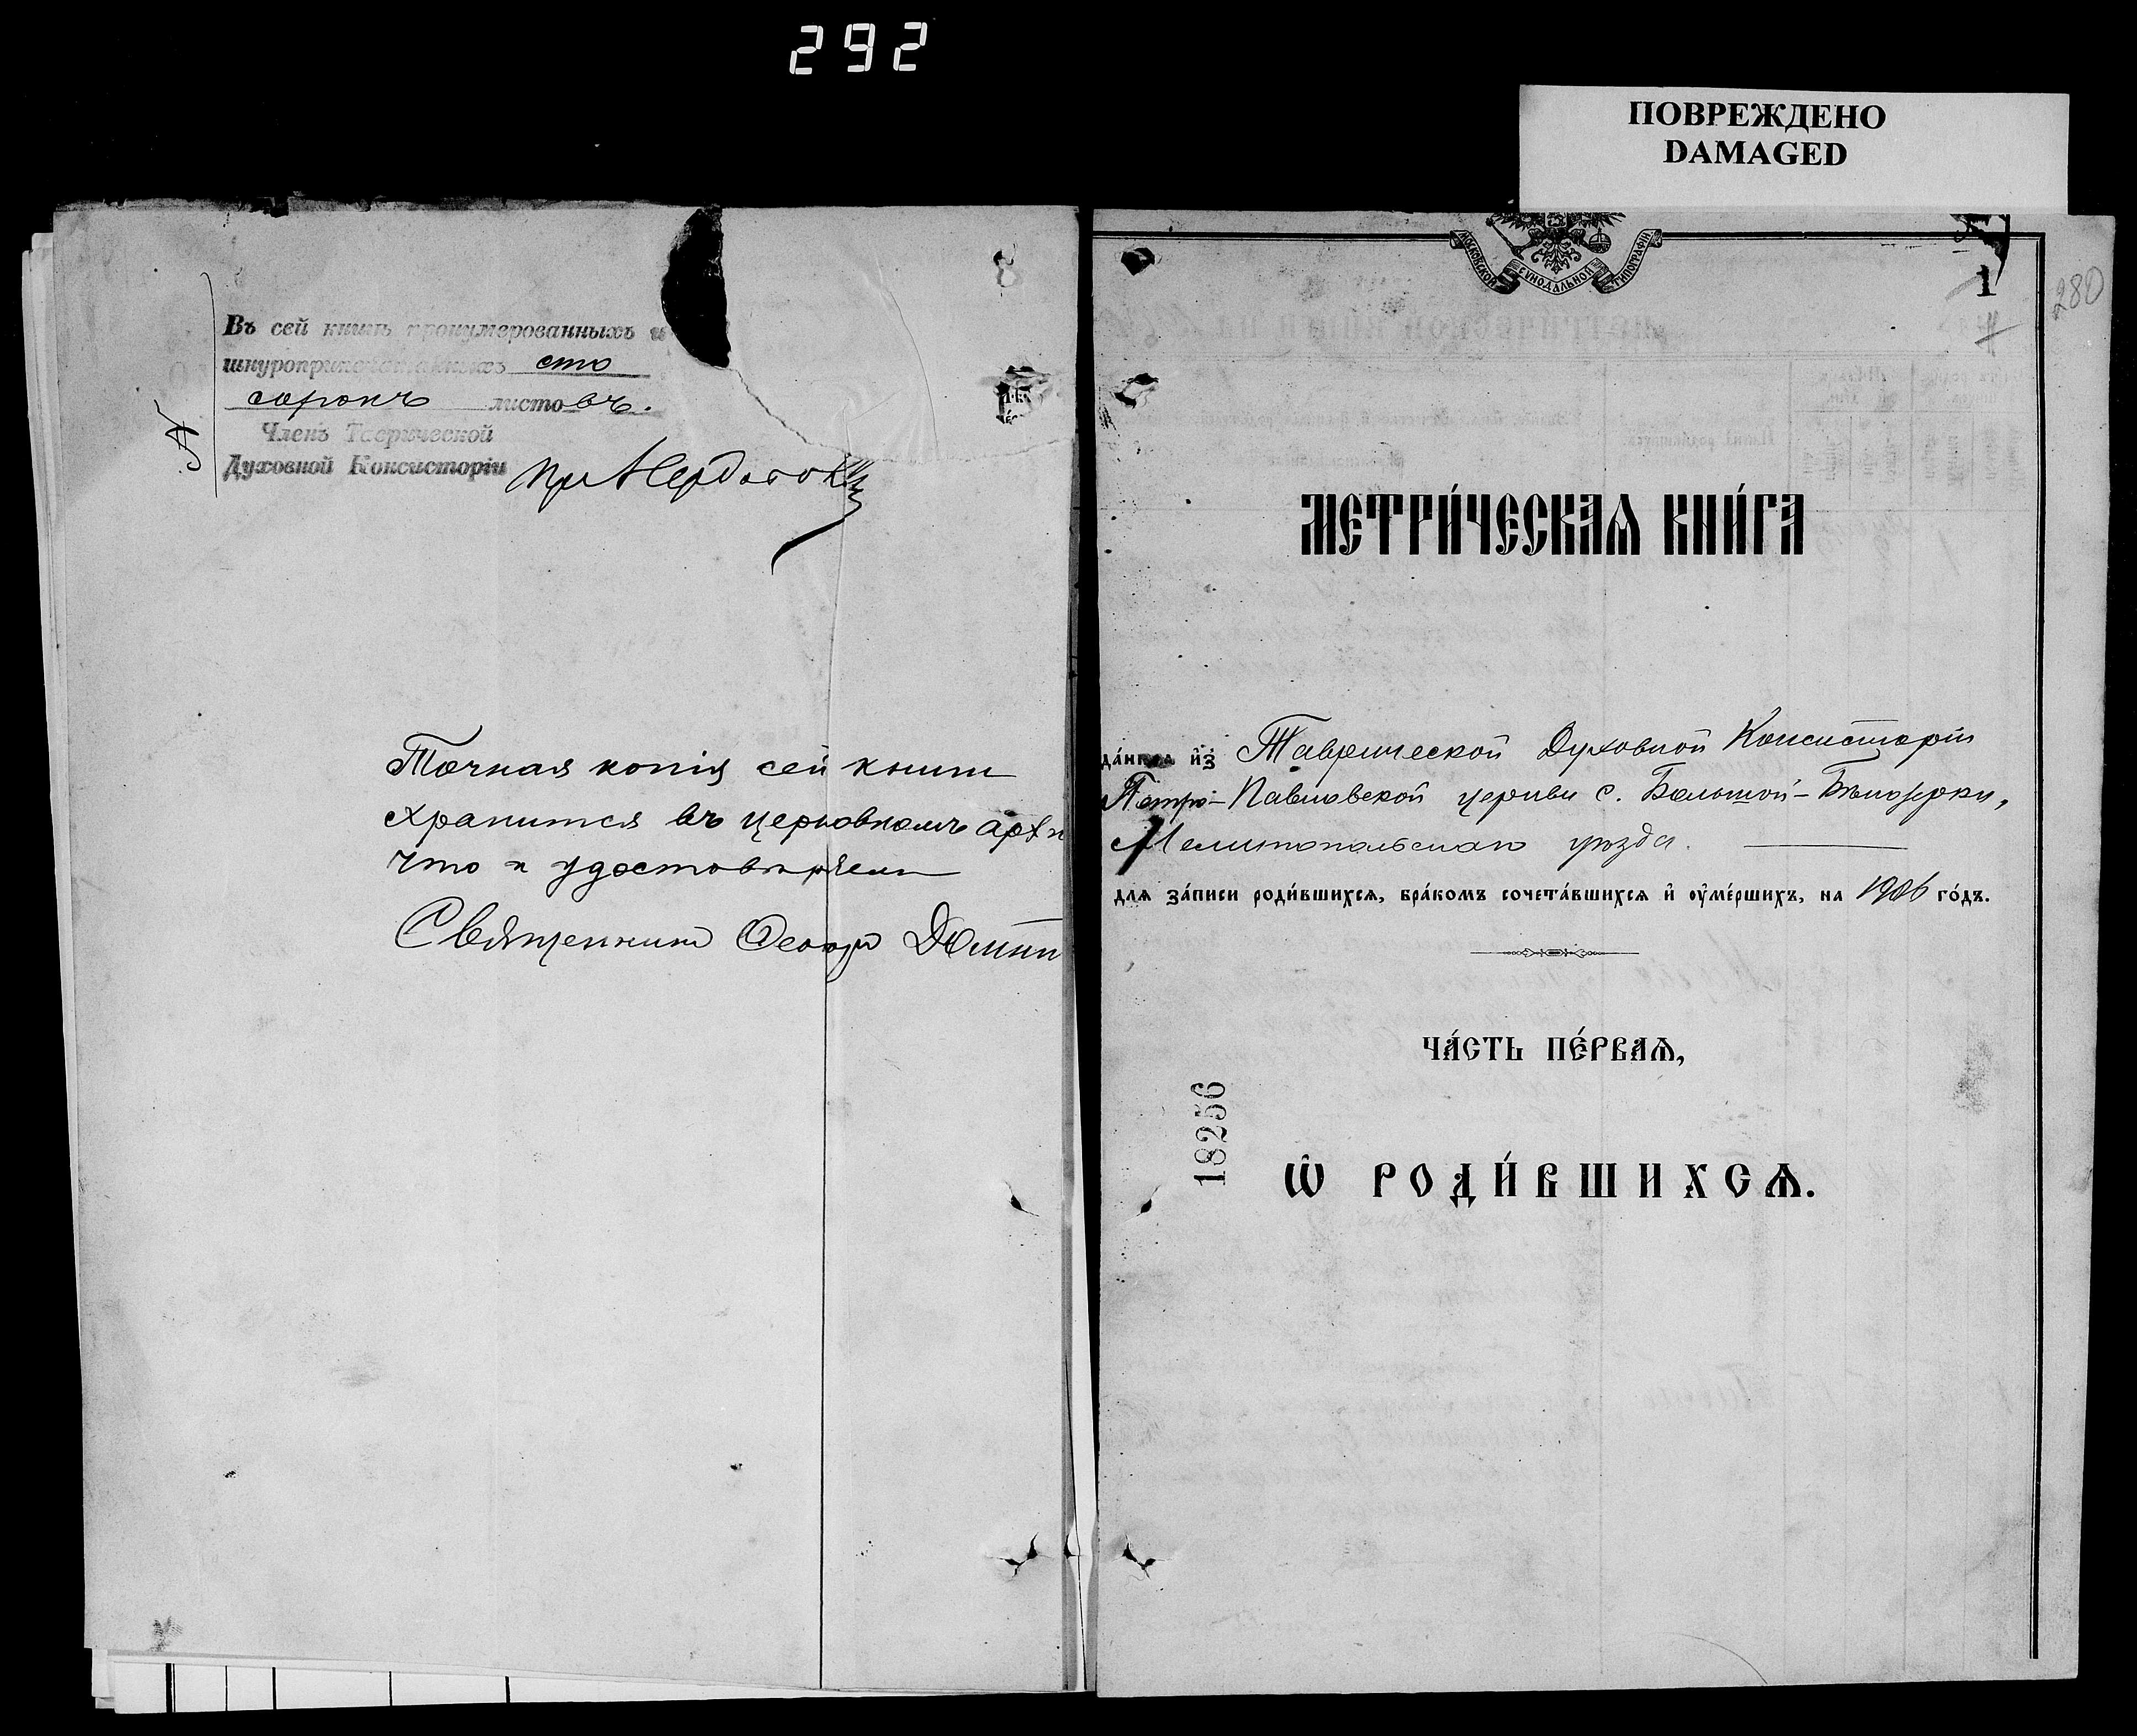 292
ПОВРЕЖДЕНО
DAMAGED
Въ сей книгѣ пронумерованныхъ и
шнуроприпечатанныхъ сто
сорокъ листовъ.
Членъ Таврической
Духовной Консисторіи
Точная копія сей книги
хранится въ церковномъ архи
что и удостовѣряемъ
Священникъ
МОСКОВСКОЙ СѴНОДАЛЬНОЙ ТИПОГРАФІИ
1
280
МЕТРИ́ЧЕСКАѦ КНИ́ГА
да́ннаѧ и҆з̾ Таврической Духовной Консисторіи
Петро-Павловской церкви с. Большой-Бѣлозерки,
Мелитопольскаго уѣзда.
для за́писи роди́вшихсѧ, бра́комъ сочета́вшихсѧ и҆ ᲂу҆ме́ршихъ, на 1906 го́дъ.
ЧА́СТЬ ПЕ́РВАѦ,
18256
Ѡ҆ РОДИ́ВШИХСѦ.